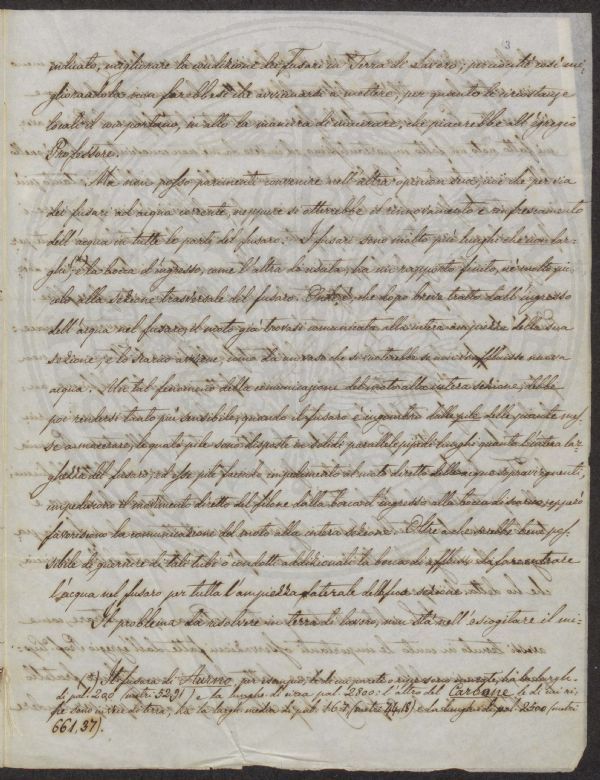 3
indicato, migliorare la condizione de' fusari in Terra di Lavoro; poiché così mi-
gliorandola non farebbesi che avvicinarsi a mettere, per quanto le circostanze
locali il comportano, in atto la maniera di macerare, che piacerebbe all'egregio
Professore.
Ma non posso parimenti convenire nell'altra opinion sua, cioè che per via
dei fusari ad acqua corrente, neppure si otterrebbe il rinnovamento e rinfrescamento
dell'acqua in tutte le parti del fusaro. I fusari sono molto più lunghi che non lar-
ghi (*), e la bocca d'ingresso, come l'altra d'uscita, ha un rapporto finito, nè molto pic-
colo alla sezione trasversale del fusaro. Ond'è, che dopo breve tratto dall'ingresso
dell'acqua nel fusaro, il moto già trovasi comunicato alla intera ampiezza della sua
sezione, e lo scarico avviene, come da un vaso che si moterebbe se non vi affluisse nuova
acqua. Un tal fenomeno della comunicazione del moto alla intera sezione, debbe
poi rendersi tanto più sensibile, quando il fusaro è ingombro dalle pile delle piante mes-
se a macerare, le quali pile sono disposte in solidi parallelepipedi lunghi quanto l'intera lar-
ghezza del fusaro; ed esse pile facendo impedimento al moto diretto delle acque sopravvegnenti,
impediscono il movimento diretto del filone dalla bocca d'ingresso alla bocca di scarico, eppérò
favoriscono la comunicazione del moto alla intera sezione. Oltre a che sarebbe bene pos-
sibile di guarnire di tali tubi o condotti addizionali la bocca di afflusso da fare entrare
l'acqua nel fusaro per tutta l'ampiezza laterale della sua sezione.
Il problema da risolvere in terra di lavoro, non istà nell'escogitare il mi-
(*) Il fusaro di Aurno, per esempio, le di cui pareti o ripe sono in reg<sup></sup>, ha la largh.
di pal: 200 (metri 52,91) e la lunghe. di circa pal. 2800: l'altro del Carbone, le di cui ri-
pe sono invece di terra, ha la largh. media di pal. 167 (metri 44,18) e la lunghe. di pal. 2500 (metri
661,37).